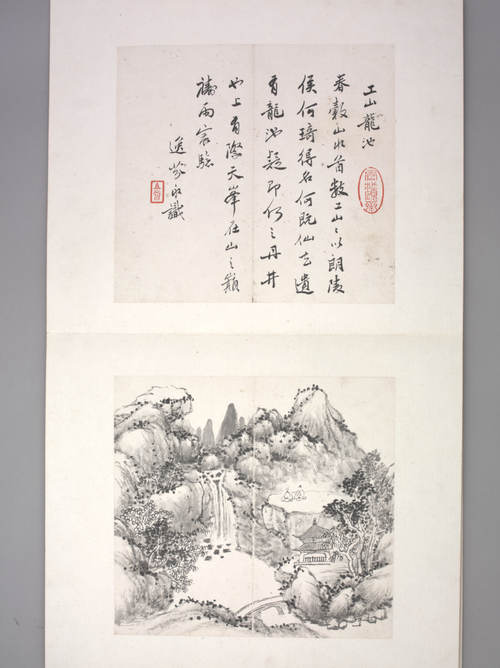 工山龍池
春穀山水首數工山〻以朗陵
侯何琦得名何既仙去遺
有龍池疑即何之丹井
也上有際天峯在山之巔
禱雨㝡驗
逸 識